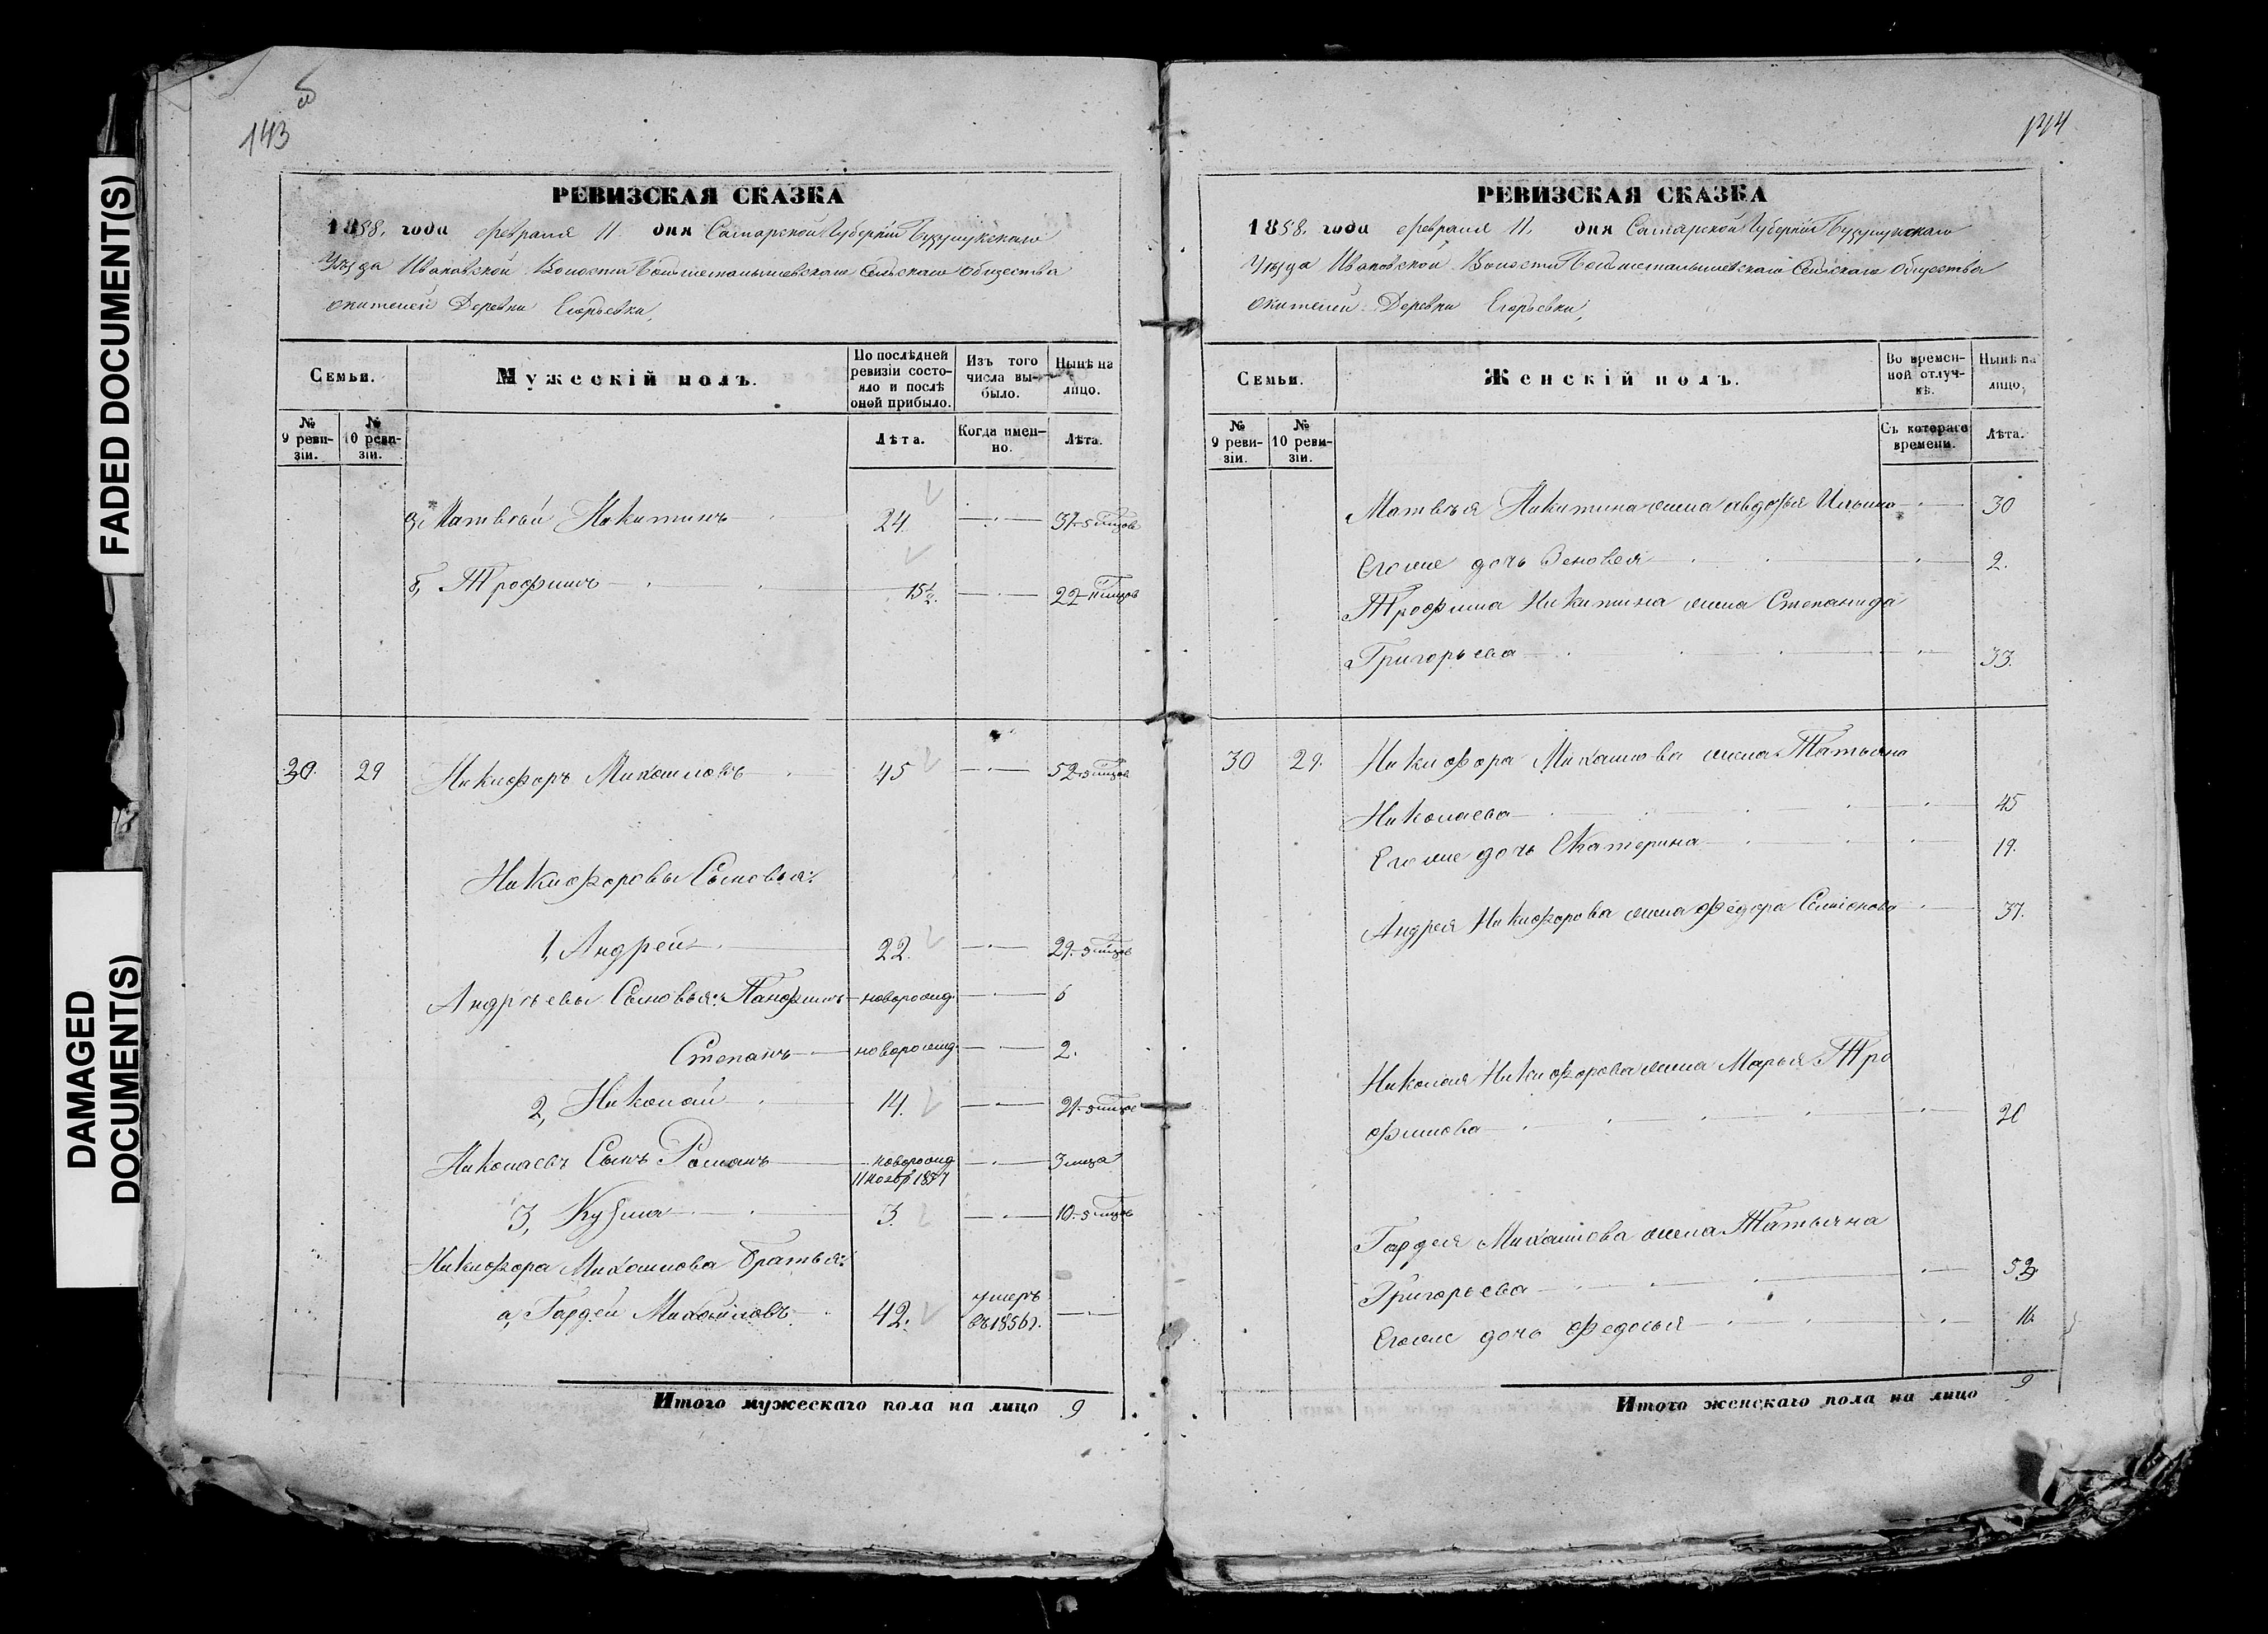 FADED DOCUMENT(S)
DAMAGED
DOCUMENT(S)
143
РЕВИЗСКАЯ СКАЗКА
1858. года февраля 11. дня Самарской Губерніи Бузулукскаго
Уѣзда Ивановской Волости сельскаго общества
жителей Деревни Егорьевки,
Семьи.
Мужескій полъ.
По послѣдней
ревизіи состо-
яло и послѣ
оной прибыло.
Изъ того
числа вы-
было.
Нынѣ на
лицо.
№
9 реви-
зіи.
№
10 реви-
зіи.
Лѣта.
Когда имен-
но.
Лѣта.
Матвѣй Никитинъ 24.
б, Трофимъ 15½. 22
30. 29 Никифоръ Михайловъ 45 52
Никифоровы Сыновья:
1, Андрей 22. 29.
Андрѣевы Сыновья: Панфилъ новорожд. 6
Степанъ новорожд. 2.
2, Николай 14. 21
Николаевъ Сынъ Романъ новорожд. 3 мѣс
11 нояб 1857
3, Кузма 3. 10
Никифора Михайлова братья:
а, Гордей Михайловъ 42. умеръ
въ 1856 г.
Итого мужескаго пола на лицо 9
144
РЕВИЗСКАЯ СКАЗКА
1858. года февраля 11. дня Самарской Губерніи Бузулукскаго
Уѣзда Ивановской Волости Сельскаго Общества
жителей Деревни Егорьевки,
Семьи.
Женскій полъ.
Во времен-
ной отлуч-
кѣ.
Нынѣ на
лицо.
№
9 реви-
зіи.
№
10 реви-
зіи.
Съ котораго
времени.
Лѣта.
Матвѣя Никитина жена Авдотья Ильина 30
Его же дочь Зеновея 2.
Трофима Никитина жена Степанида
Григорьева 33.
30 29. Никифора Михайлова жена Татьяна
Николаева 45
Его же дочь Екатерина 19.
Андрея Никифорова жена Федора Семіонова 37.
Николая Никифорова жена Марья Тро
фимова
Гордея Михайлова жена Татьяна
Григорьева
Его же дочь Федосья 16.
Итого женскаго пола на лицо 9